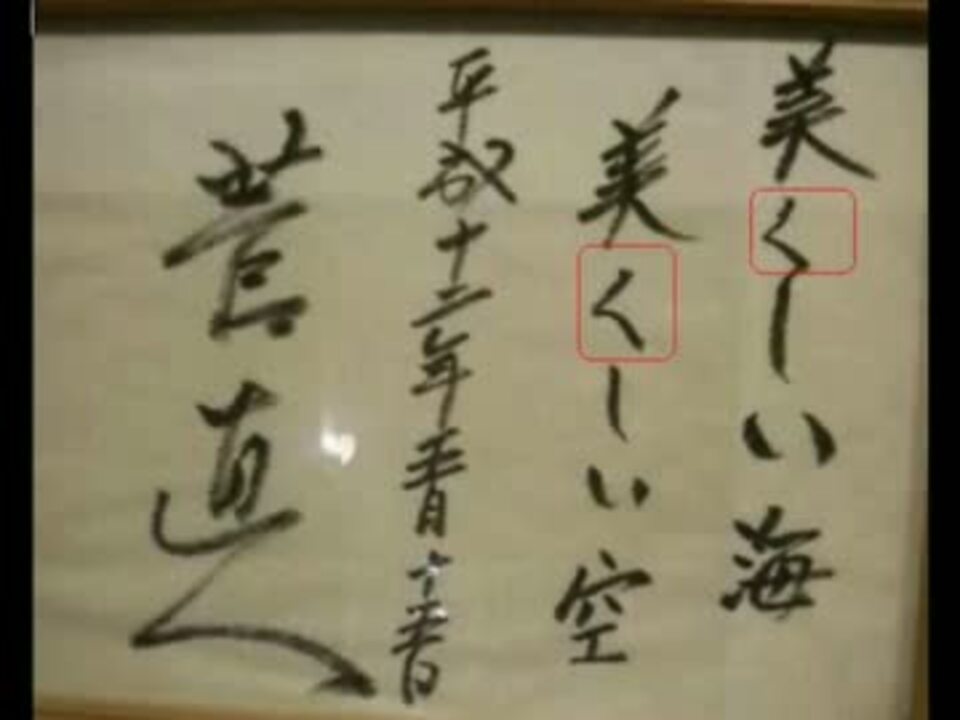 美くしい海
美くしい空
平成十二年
菅直人